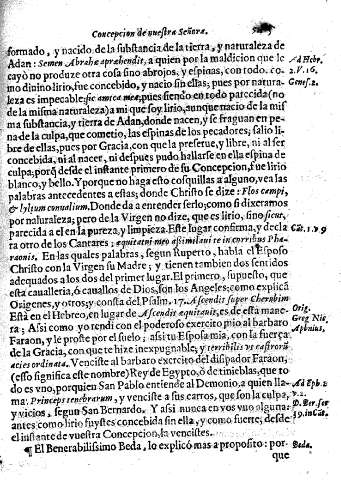 Concepcion de nuestra Señora.
formado, y nacido de la substancia de la tierra, y naturaleza de
Adan: Semen Abrahæ aprahendit, a quien por la maldicion que le
cayò no produze otra cosa sino abrojos, y espinas, con todo, co-
mo divino lirio, fue concebido, y nacio sin ellas; pues por natura-
leza es impecable: sic amica mea, pues siendo en todo parecida (no
de la misma naturaleza) a mi que soy lirio, aunque nacio de la mis
ma substancia, y tierra de Adan, donde nacen, y se fraguan en pe-
na de la culpa, que cometio, las espinas de los pecadores; salio li-
bre de ellas, pues por Gracia, con que la preserue, y libre, ni al ser
concebida, ni al nacer, ni despues pudo hallarse en ella espina de
culpa; porq̃ desde el instante primero de su Concepcion, fue lirio
blanco, y bello. Y porque no haga esto cosquillas a alguno, vea las
palabras antecedentes a estas, donde Christo se dize: Flos campi,
& lylium convalium. Donde da a entender serlo; como si dixeramos
por naturaleza; pero de la Virgen no dize, que es lirio, sino sicut,
parecida a el en la pureza, y limpieza. Este lugar confirma, y decla
ra otro de los Cantares: equitatui meo assimilavi te in curribus Pha-
raonis. En las quales palabras, segun Ruperto, habla el Esposo
Christo con la Virgen su Madre; y tienen tambien dos sentidos
adequados a los dos del primer lugar. El primero, supuesto, que
esta caualleria, ò cauallos de Dios, son los Angeles; como explicã
Osigenes, y otros; y consta del Psalm. 17. Ascendit super Cherubim
Està en el Hebreo, en lugar de Ascendit equitanis, es de esta mane-
ra: Assi como yo rendi con el poderoso exercito mio al barbaro
Faraon, y lè prostrè por el suelo; assi tu Esposa mia, con la fuerça
de la Gracia, con que te hize inexpugnable, y terribilis vt castrorũ
acies ordinata. Venciste al barbaro exercito del disipador Faraon,
(esso significa este nombre) Rey de Egypto, ò de tinieblas, que to
do es vno, porquien San Pablo entiende al Demonio, a quien lla-
ma: Princeps tenebrarum, y venciste a sus carros, que son la culpa,
y vicios, segun San Bernardo. Y assi nunca en vos vno alguna:
antes como lirio fuystes concebida sin ella, y como fuerte; desde
el instante de vuestra Concepcion, la vencistes.
¶ El Benerabilissimo Beda, lo explicò mas a proposito: por-
que
Ad Hebr.
2. V. 16.
Genes. 2.
Cãt. 1. v 9
Orig.
Greg. Nic,
Aponius.
Ad Eph. 2
v. 2.
D. Ber. ser
39. in Cãt.
Beda.